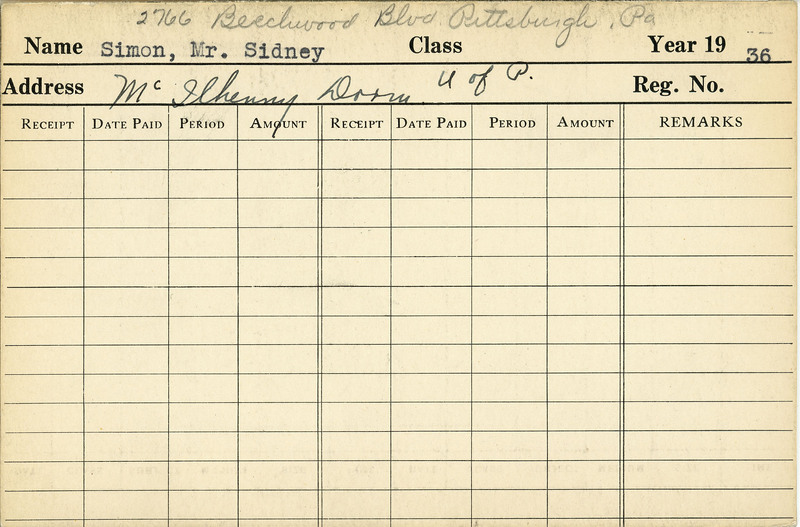 2766 Beechwood Blvd Pittsburgh, Pa
Name Simon, Mr. Sidney Class Year 19 36
Address Mc Ilhenny Dorm. U of P. Reg. No.
RECEIPT DATE PAID PERIOD AMOUNT RECEIPT DATE PAID PERIOD AMOUNT REMARKS